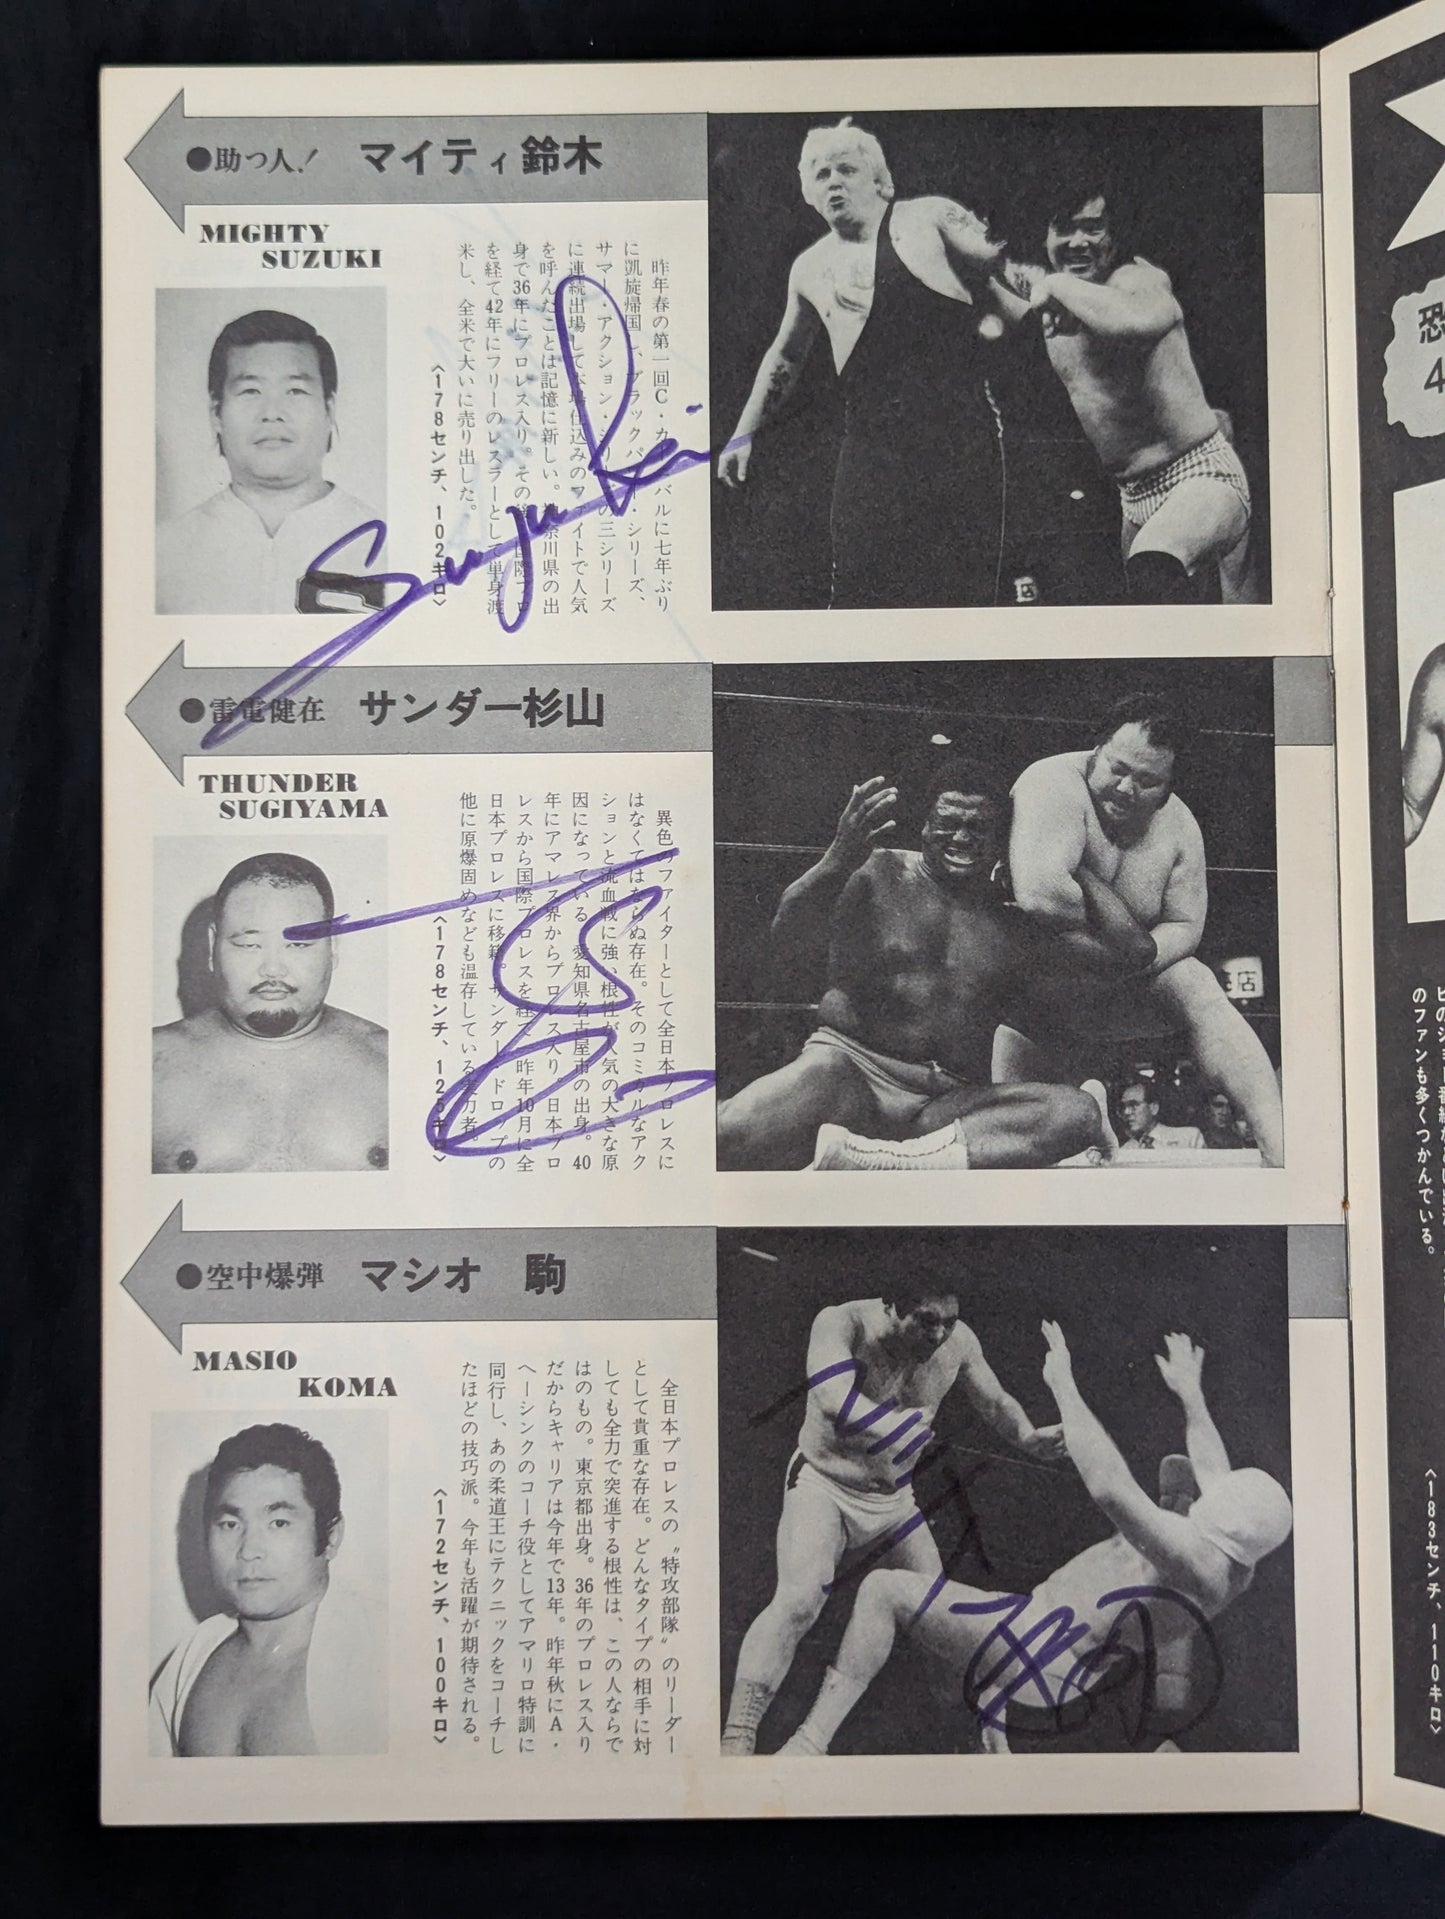 ●助っ人！ マイティ鈴木
MIGHTY
SUZUKI
昨年春の第一回C・カーニバルに七年ぶり
に凱旋帰国し、ブラックパワー・シリーズ、
サマー・アクション・シリーズの三シリーズ
に連続出場して本場仕込みのファイトで人気
を呼んだことは記憶に新しい。神奈川県の出
身で36年にプロレス入り。その後国際プロ
を経て42年にフリーのレスラーとして単身渡
米し、全米で大いに売り出した。
〈178センチ、102キロ〉
Suzuki
●雷電健在 サンダー杉山
THUNDER
SUGIYAMA
異色のファイターとして全日本プロレスに
はなくてはならぬ存在。そのコミカルなアク
ションと流血戦に強い根性が人気の大きな原
因になっている。愛知県名古屋市の出身。40
年にアマレス界からプロレス入り。日本プロ
レスから国際プロレスを経て昨年10月に全
日本プロレスに移籍。サンダー・ドロップの
他に原爆固めなども温存している実力者。
〈178センチ、125キロ〉
●空中爆弾 マシオ 駒
MASIO
KOMA
全日本プロレスの〝特攻部隊〟のリーダー
として貴重な存在。どんなタイプの相手に対
しても全力で突進する根性は、この人ならで
はのもの。東京都出身。36年のプロレス入り
だからキャリアは今年で13年。昨年秋にA・
ヘーシンクのコーチ役としてアマリロ特訓に
同行し、あの柔道王にテクニックをコーチし
たほどの技巧派。今年も活躍が期待される。
〈172センチ、100キロ〉
マシオ駒
恐
4
のファンも多くつかんでいる。
〈183センチ、110キロ〉